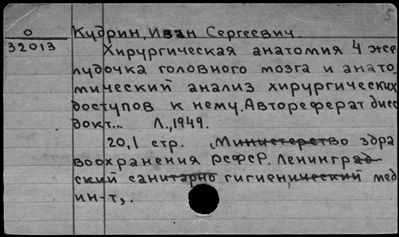 5
О Кудрин, Иван Сергеевич.
32013 Хирургическая анатомия 4 же
лудочка головного мозга и анато-
мический анализ хирургических
доступов к нему. Автореферат дисс
докт... Л., 1949.
20,1 стр. Министерство здра
воохранения РСФСР. Ленинград-
ский санитарно гигиенический мед
ин-т,.